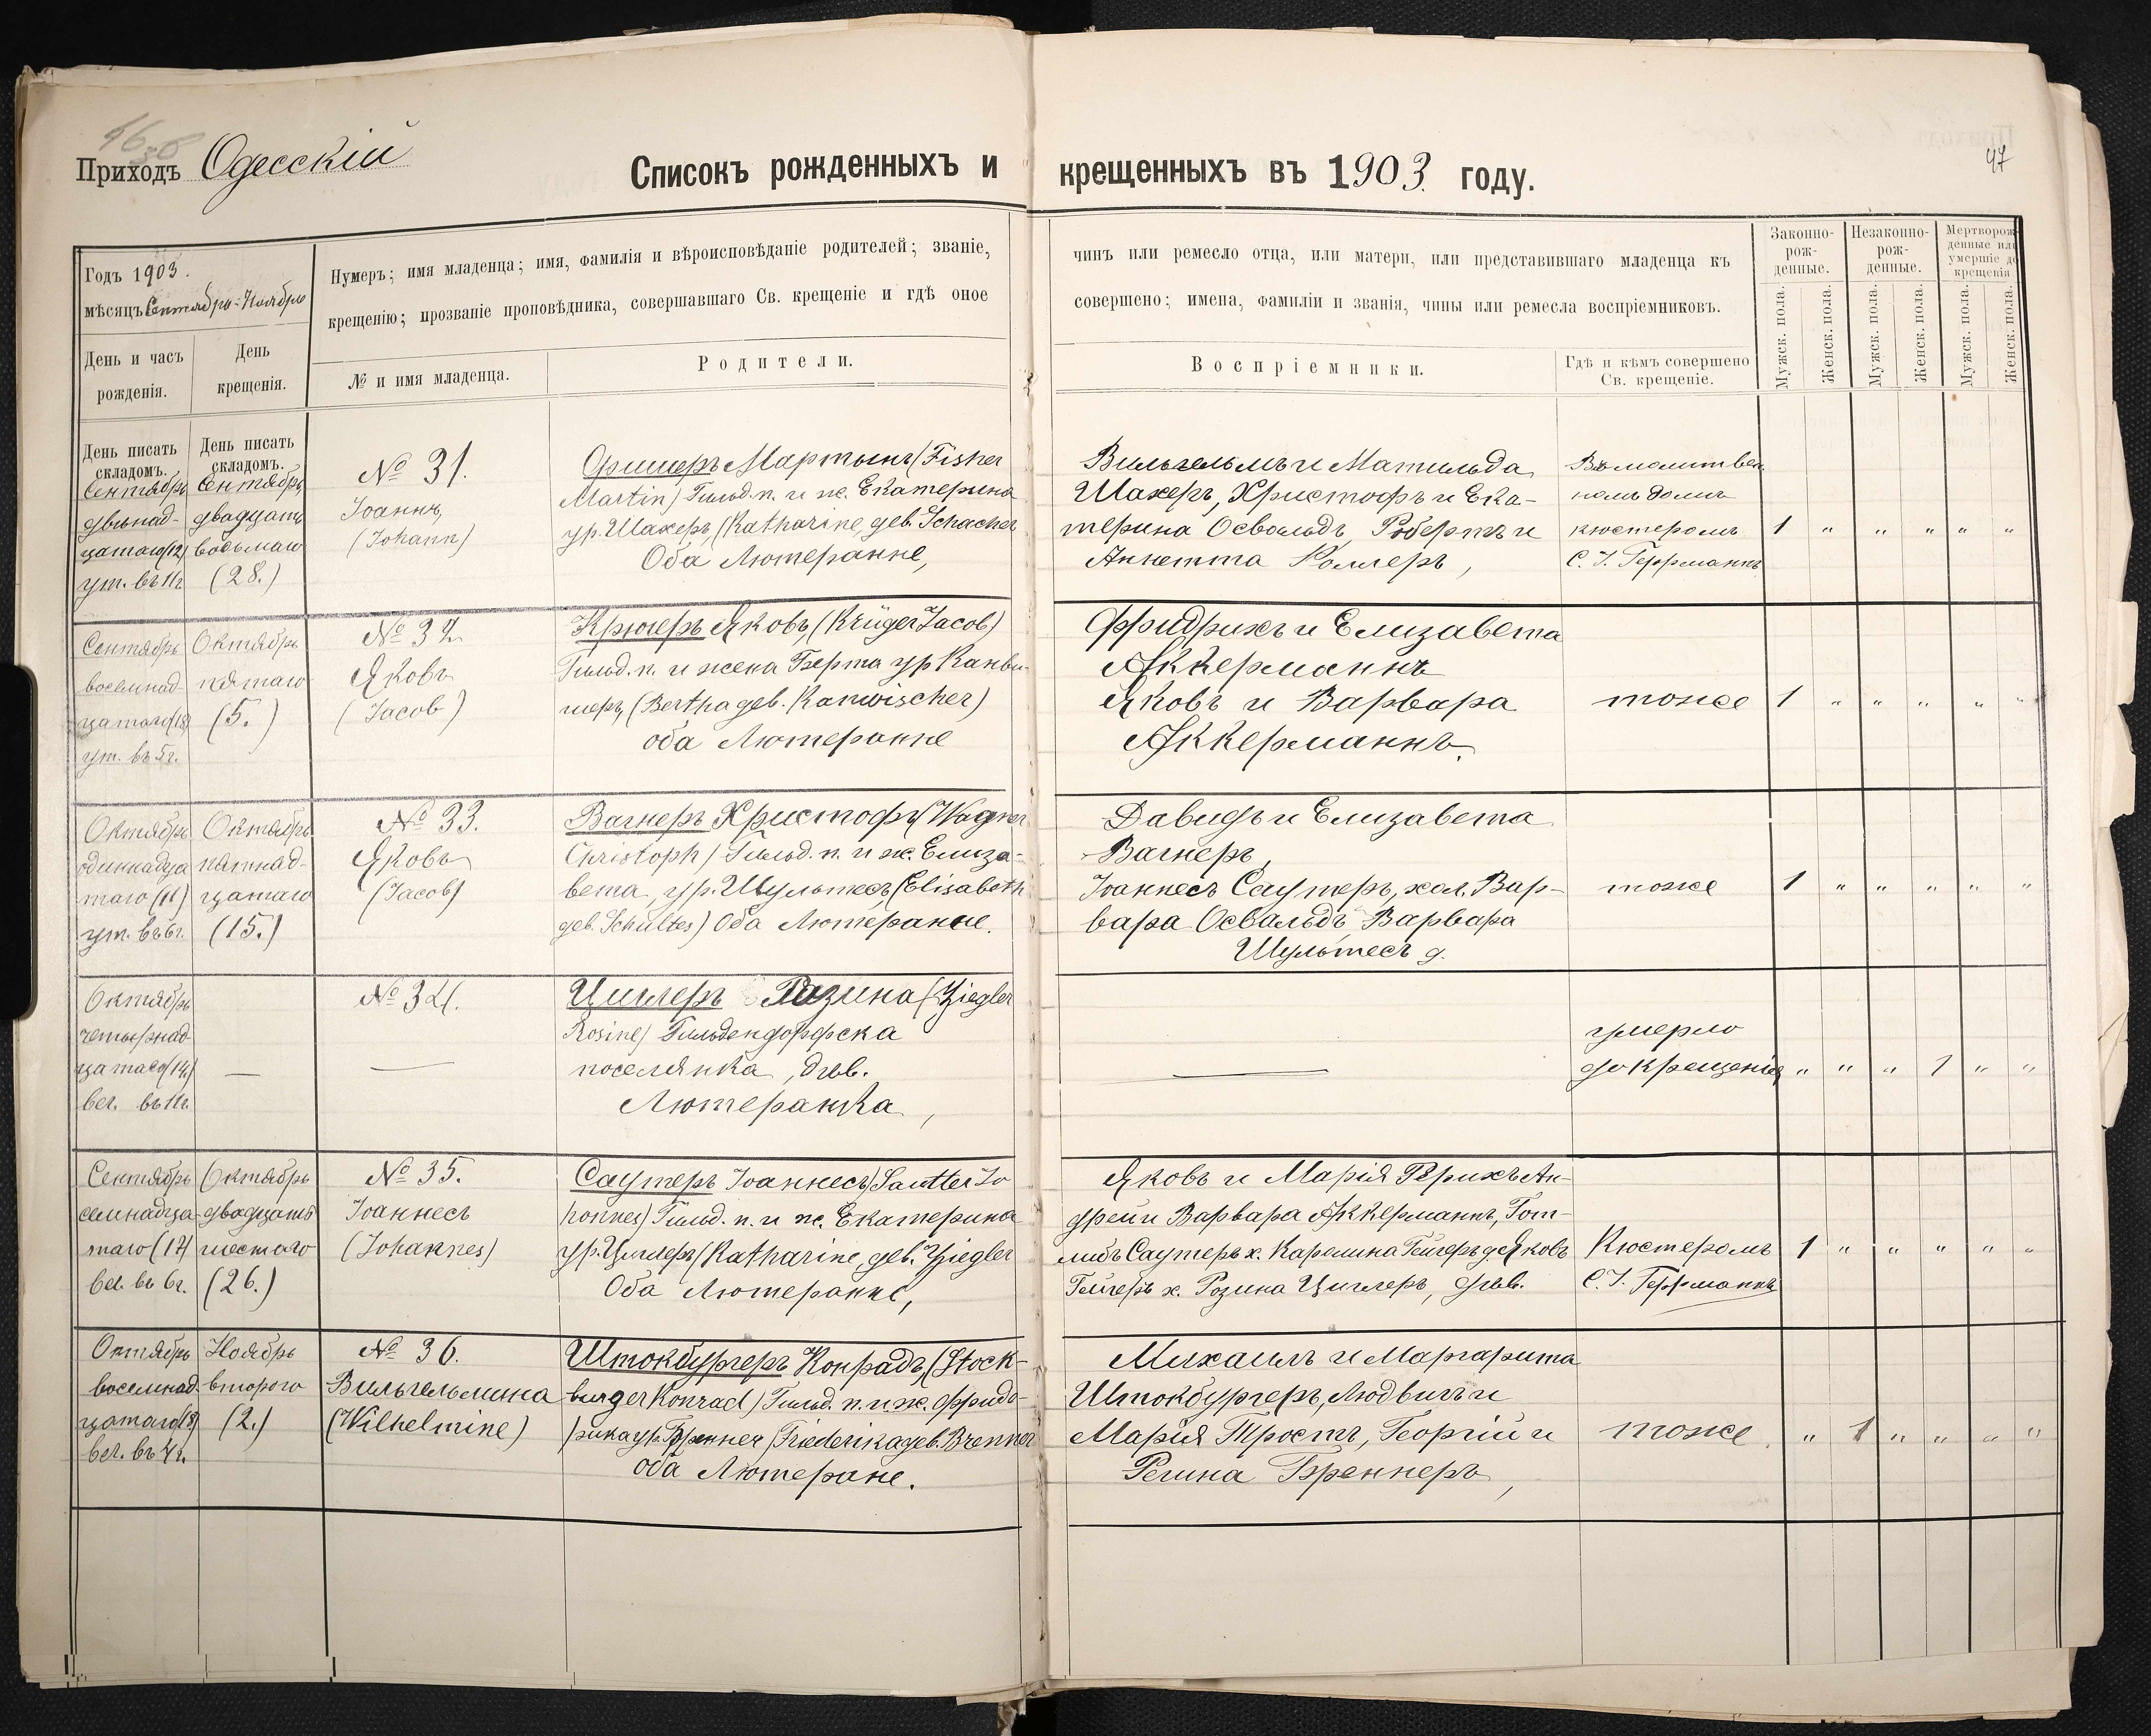 Приходъ Одесскій
Списокъ рожденныхъ и крещенныхъ въ 1903. году.
47
Годъ 1903.
мѣсяцъ Сентябрь-Ноябрь
День и часъ
рожденія.
День
крещенія.
Нумеръ; имя младенца; имя, фамилія и вѣроисповѣданіе родителей; званіе,
крещенію; прозваніе проповѣдника, совершавшаго Св. крещеніе и гдѣ оное
№ и имя младенца.
Родители.
чинъ или ремесло отца, или матери, или представившаго младенца къ
совершено; имена, фамиліи и званія, чины или ремесла воспріемниковъ.
Воспріемники.
Гдѣ и кѣмъ совершено
Св. крещеніе.
Законно-
рож-
денные.
Незаконно-
рож-
денные.
Мертворож
денные или
умершіе до
крещенія
Мужск. пола.
Женск. пола.
Мужск. пола.
Женск. пола.
Мужск. пола.
Женск. пола.
День писать
складомъ.
Сентябрь
двѣнад-
цатаго (12)
ут. въ 11 ч.
День писать
складомъ.
Сентябрь
двадцать
восьмаго
(28.)
№ 31.
Іоаннъ,
(Johann)
Фишеръ Мартынъ (Fisher
Martin) Гильд. п. и ж. Екатерина
ур. Шахеръ, (Katharine, geb. Schacher
Оба Лютеранне,
Вильгельмъ и Матильда
Шахеръ, Христофъ и Ека-
терина Освальдъ, Робертъ и
Аннетта Роллеръ,
Въ молитвен
номъ домѣ
кюстеромъ
С. І. Геррманнъ
1 " " " " "
Сентябрь
восемнад-
цатаго (18)
ут. въ 5 ч.
Октябрь
пятаго
(5.)
№ 32
Яковъ
(Jacob)
Крюгеръ Яковъ, (Krüger Jacob)
Гильд. п. и жена Берта ур Канви-
шеръ, (Bertha geb. Kanwischer)
оба Лютеранне
Фридрихъ и Елизавета
Аккерманнъ
Яковъ и Варвара
Аккерманнъ.
тоже
1 " " " " "
Октябрь
одиннадца
таго (11)
ут. въ 6 ч.
Октябрь
пятнад-
цатаго
(15.)
№ 33.
Яковъ
(Jacob)
Вагнеръ Христофъ (Wagner
Christoph) Гильд. п. и ж. Елиза-
вета, ур. Шультесъ, (Elisabeth
geb. Schultes) Оба Лютеранне.
Давидъ и Елизавета
Вагнеръ,
Іоаннесъ Саутеръ, хол. Вар-
вара Освальдъ Варвара
Шультесъ д.
тоже
1 " " " " "
Октябрь
четырнад-
цатаго (14)
веч. въ 11 ч.
—
№ 34.
—
Циглеръ Розина (Ziegler
Rosine) Гильдендорфска
поселянка, дѣв.
Лютеранка,
—
умерло
до крещенія
" " " 1 " "
Сентябрь
семнадца-
таго (17)
веч. въ 6 ч.
Октябрь
двадцать
шестаго
(26.)
№ 35.
Іоаннесъ
(Johannes)
Саутеръ Іоаннесъ) Sautter Jo
hannes) Гильд. п. и ж. Екатерина
ур. Циглеръ (Katharine, geb. Ziegler
Оба Лютеранне,
Яковъ и Марія Герихъ Ан-
дрей и Варвара Аккерманнъ, Гот-
либъ Саутеръ х. Каролина Гейгеръ д. Яковъ
Гейгеръ х. Розина Циглеръ, дѣв.
Кюстеромъ
С. І. Геррманнъ
1 " " " " "
Октябрь
восемнад-
цатаго (18)
веч. въ 4 ч.
Ноябрь
второго
(2.)
№ 36.
Вильгельмина
(Wilhelmine)
Штокбургеръ Конрадъ, (Stock-
burger Konrad) Гильд. п. и ж. Фриде-
рика ур. Бреннеч (Friederika geb. Brenner
оба Лютеране.
Михаилъ и Маргарита
Штокбургеръ, Людвигъ и
Марія Тростъ, Георгій и
Регина Бреннеръ,
тоже
" 1 " " " "